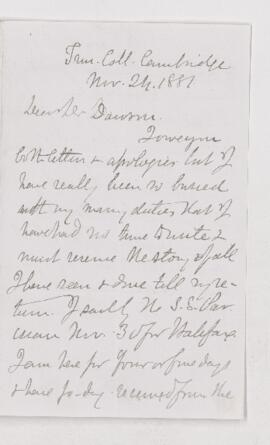 Trin. Coll. Cambridge
Nov. 24. 1881
Dear Dr Dawson
I owe you
both letters & apologies but I
have really been so busied
with my many duties that I
have had no time to write &
must reserve the story of all
I have seen & done till my re-
turn. I sail by the S.S. Par-
isian Nov. 30 for Halifax
I am here for four or five days
& have to-day received from the